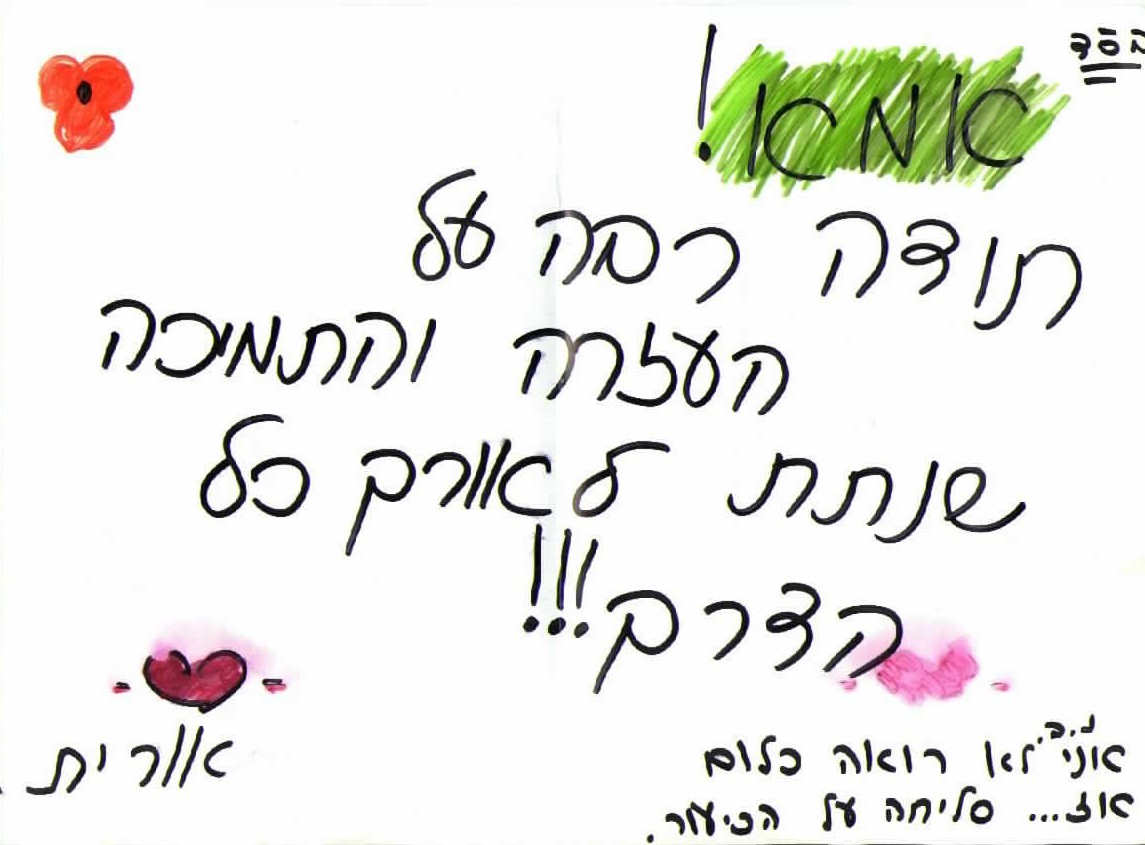 בסד
אמא!
תודה רבה על
העזרה והתמיכה
שנתת לאורך כל
הדרך!!!
אורית
נ.ב.
אני לא רואה כלום
אז... סליחה על הכיעור.